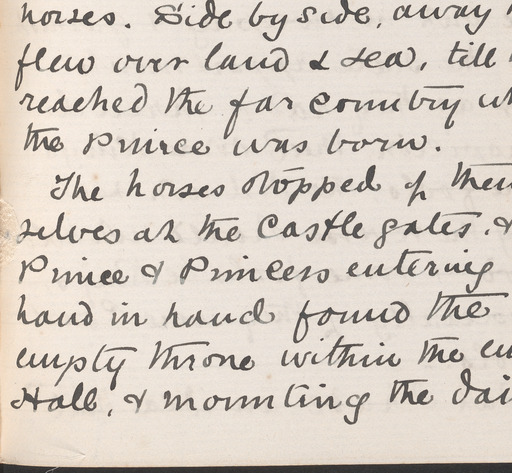 horses. Side by side, away
flew over land & sea, till
reached the far country wh
the Prince was born.
The horses stopped of them
selves at the Castle gates, &
Prince & Princess entering
hand in hand found the
empty throne within the em
Hall, & mounting the dai